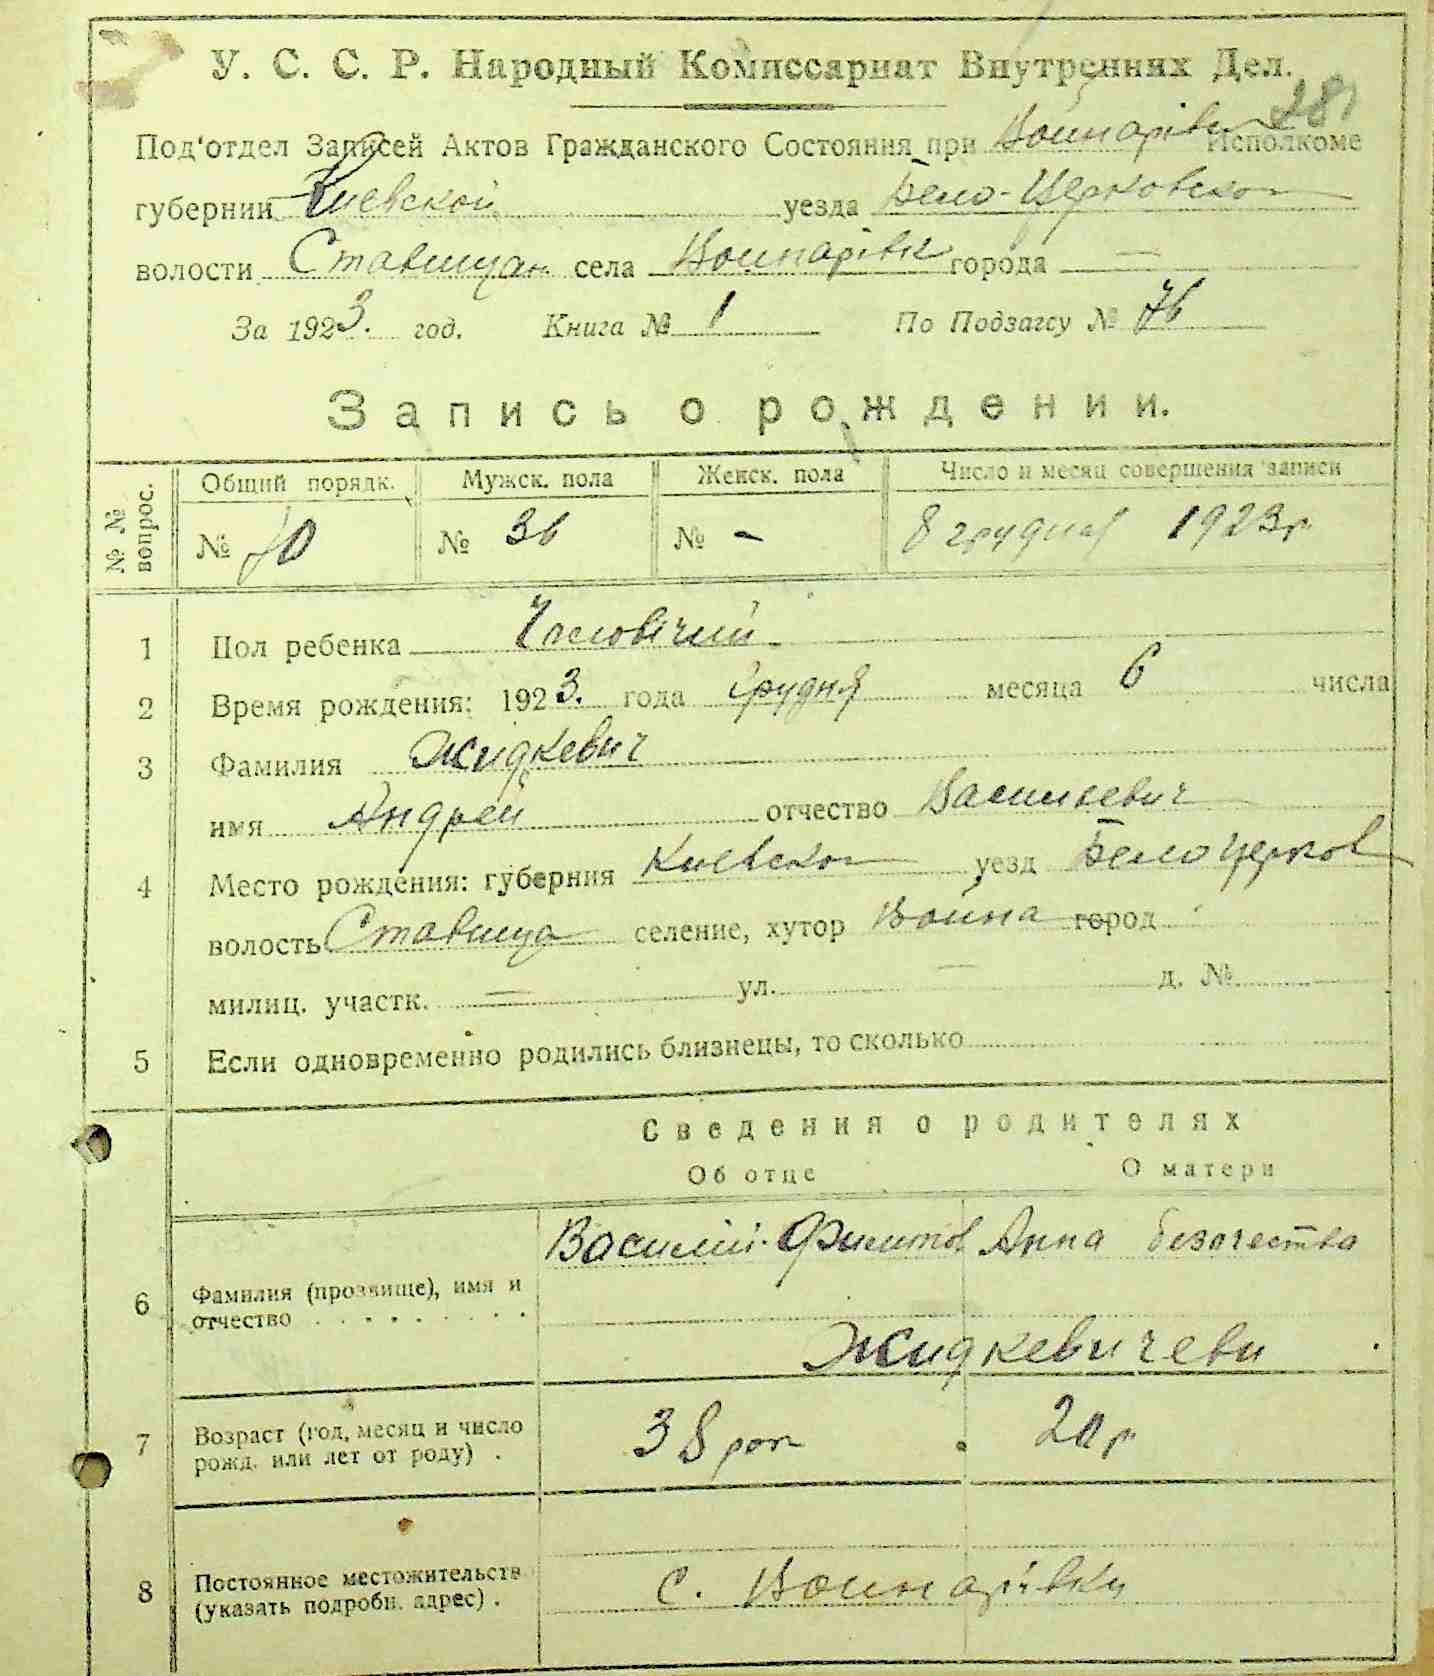 У. С. С. Р. Народный Комиссариат Внутренних Дел.
281
Под'отдел Записей Актов Гражданского Состояния при Войнарівк Исполкоме
губернии Киевской уезда Бело-Церковско
волости Ставищан села Войнарівк города —
За 1923. год. Книга № 1 По Подзагсу № 76
Запись о рождении.
№ № вопрос. Общий порядк. Мужск. пола Женск. пола Число и месяц совершения записи
№ 70 № 36 № - 8 грудня 1923 р.
1 Пол ребенка Чоловічий
2 Время рождения: 1923. года Грудня месяца 6 числа
3 Фамилия Жидкевич
имя Андрей отчество Васильевич
4 Место рождения: губерния Киевско уезд Белоцерков
волость Ставища селение, хутор Война город
милиц. участк. — ул. — д. №
5 Если одновременно родились близнецы, то сколько
Сведения о родителях
Об отце О матери
Василий Филитов Анна безочества
6 Фамилия (прозвище), имя и
отчество
Жидкевичеви
7 Возраст (год, месяц и число
рожд. или лет от роду) . 38 рок 20 р
8 Постоянное местожительств
(указать подробн. адрес) . с. Войнарівки